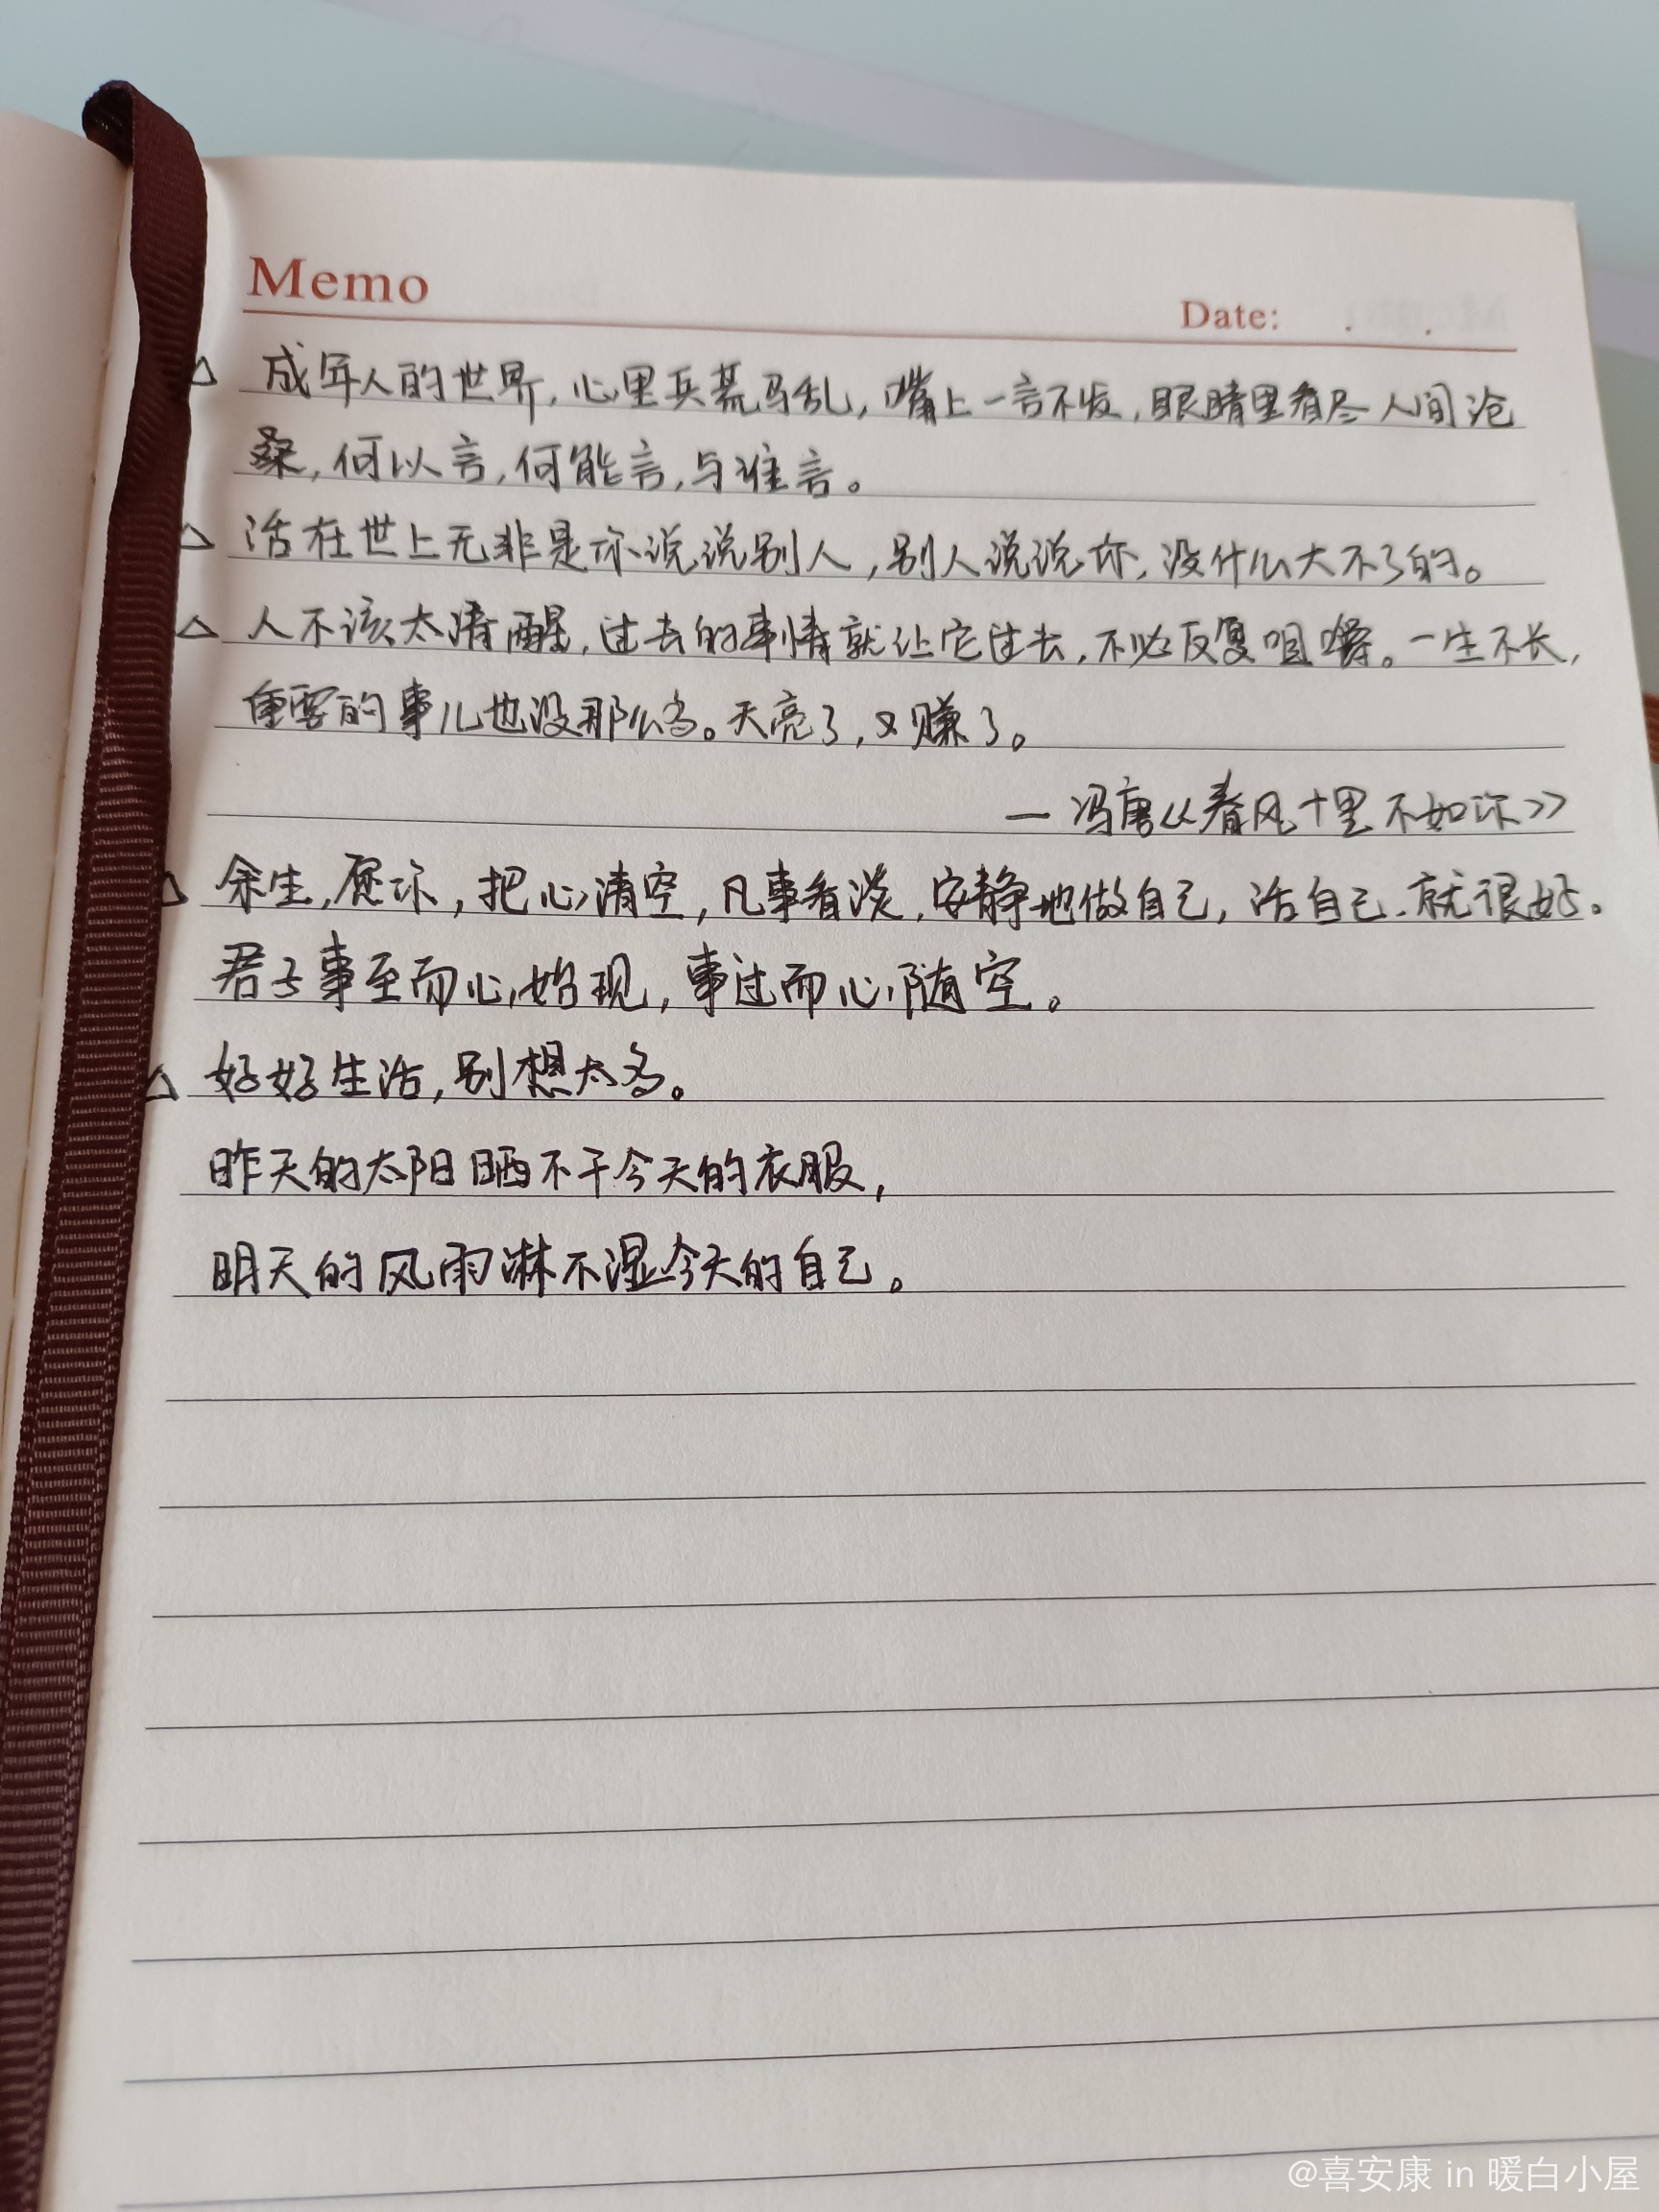 Memo
Date: . .
△ 成年人的世界,心里兵荒马乱,嘴上一言不发,眼睛里看尽人间沧
桑,何以言,何能言,与谁言。
△ 活在世上无非是你说说别人,别人说说你,没什么大不了的。
△ 人不该太清醒,过去的事情就让它过去,不必反复咀嚼。一生不长,
重要的事儿也没那么多。天亮了,又赚了。
— 冯唐《春风十里不如你》
△ 余生,愿你,把心清空,凡事看淡,安静地做自己,活自己.就很好。
君子事至而心始现,事过而心随空。
△ 好好生活,别想太多。
昨天的太阳晒不干今天的衣服,
明天的风雨淋不湿今天的自己。
@喜安康 in 暖白小屋